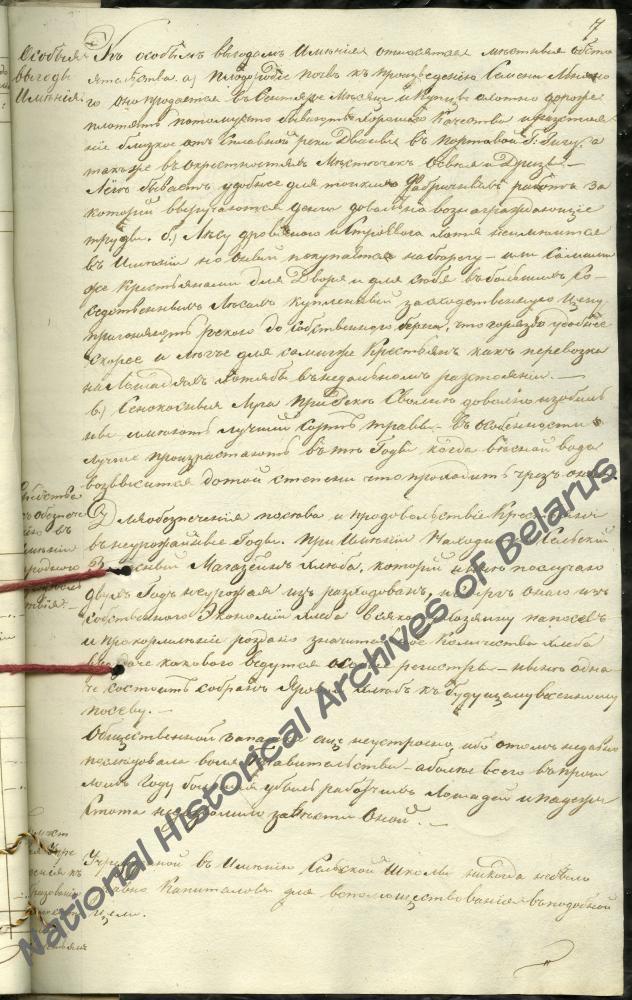 7
Особыя
выгоды
Имѣнія.
Къ особымъ выгодамъ Имѣнія относятся мѣстныя обсто
ятельства. а) плодородіе почвъ къ произведенію Сѣмени Льняно
го оно продается въ Сентябрѣ Мѣсяцѣ и Купцы охотно дороже
платятъ потому что бываетъ хорошаго Качества и разстоя
ніе близкое отъ Главной реки Двины въ портовой Г. Ригу, а
также въ окрестностяхъ Мѣстечекъ Освѣи и Дризы. —
Лёнъ бываетъ удобнее для тонкихъ Фабричныхъ работъ за
который выручаются деньги довольно вознаграждающіе
труды. б.) Лѣсу дровянаго и строеваго хотя не имѣится
въ Имѣніи но оный покупается на берегу — или Самими
же Крестьянами для Двора и для себя въ большихъ Со
седственныхъ Лѣсахъ купленный за посредственную цену
пригоняетъ рекою до собственнаго берега, что гораздо удобнее
скорее и легче для самихже Крестьянъ какъ перевозка
на Лошадяхъ хотябы въ недальномъ разстояніи. —
в.) Сенокосныя Луга при Реке Сволнѣ довольно изобиль
ные имѣютъ лучшій сортъ травы — въ особенности
лучше произрастаютъ въ тѣ Годы когда весной вода
возвысится до той степени что проходитъ чрезъ оные.
Средства
къ обезпече
нію въ
имѣніи
народнаго
Для обезпеченія посѣва и продовольствіе Крестьянъ
въ неурожайные Годы. При Имѣніи Находится Сельскій
Магазейнъ хлѣба, который нынѣ по случаю
двухъ Годъ неурожая изъ расходованъ, но сверхъ онаго изъ
собственнаго Экономіи хлѣба всякому хозяину на посевъ
и прокормленіе роздано значительное Количество хлѣба
въ роздаче каковаго ведутся особые регистры — нынѣ одна
че состоитъ собранъ Яровой хлѣбъ къ будущему весенному
посеву. —
Общественной запашки еще не устроено, ибо о томъ недавно
последовала воля Правительства — а более всего въ прош
ломъ Году большая убыль рабочихъ Лошадей и падежъ
Скота не дозволило завѣсти Оной. —
Учрежденной въ Имѣніи Сельской Школы никогда не было
равно Капиталовъ для вспомоществованія въ подобной
цели.
National Historical Archives of Belarus